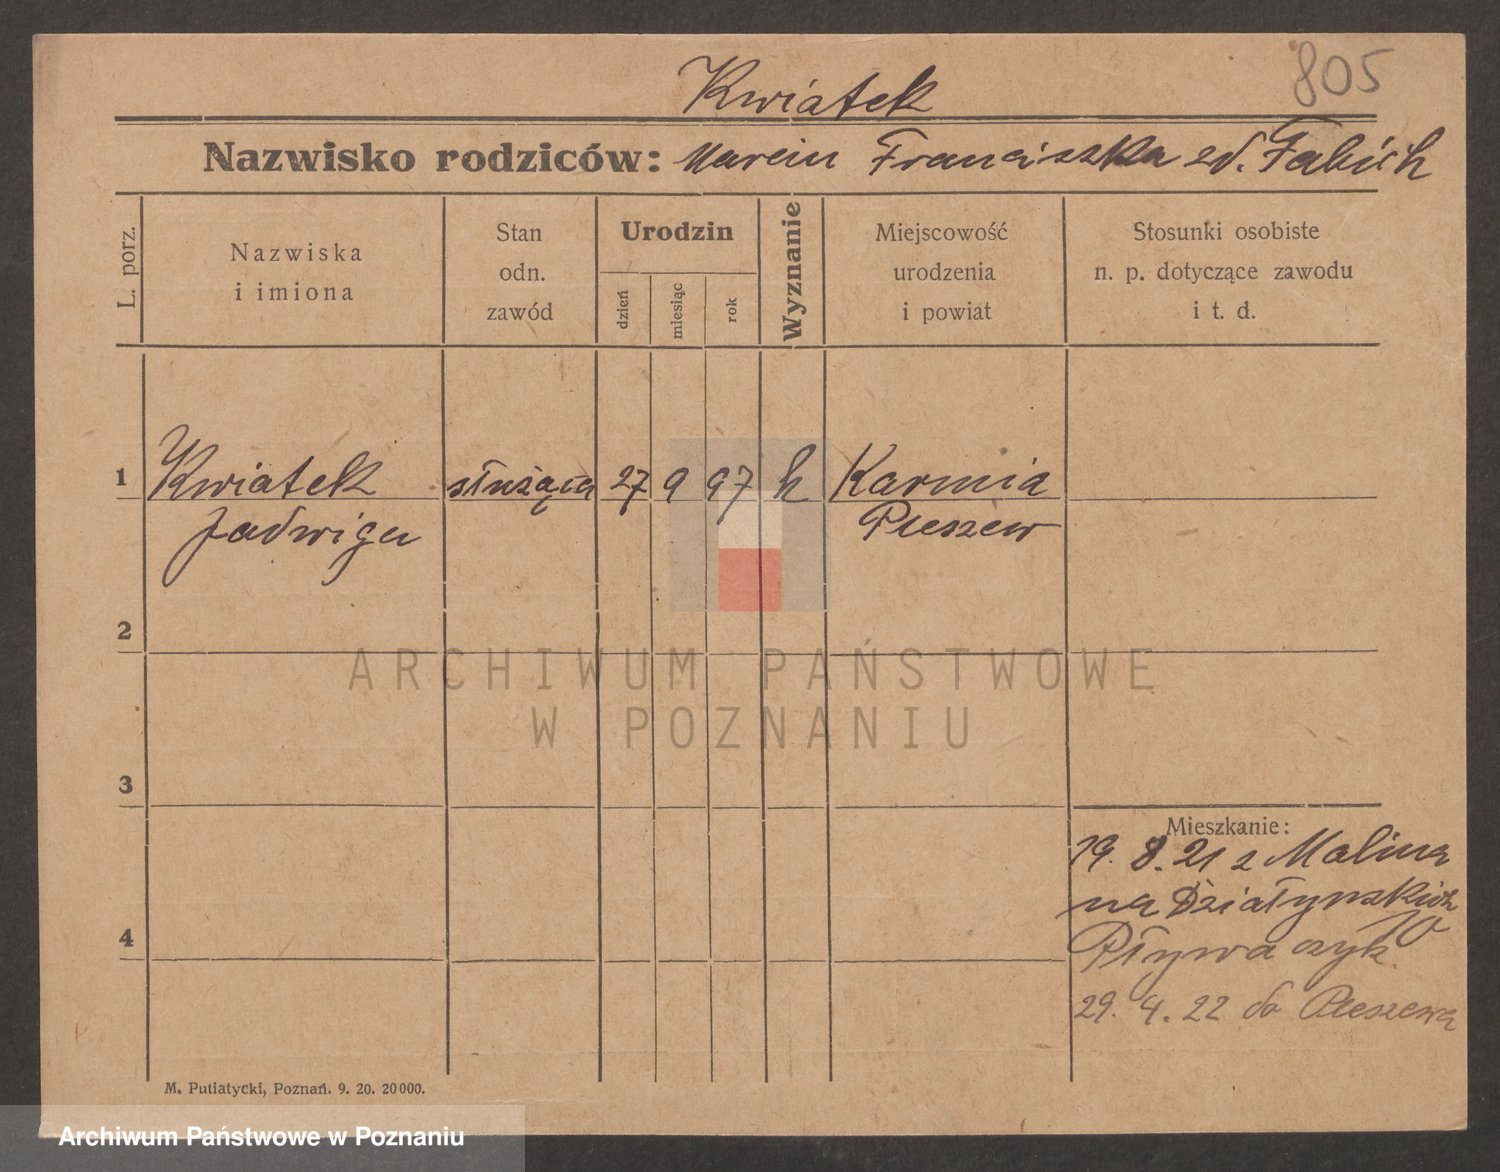 805
Kwiatek
Nazwisko rodziców: Marcin Franciszka zd. Fabich
L. porz.
Nazwiska i imiona
Stan odn. zawód
Urodzin
dzień
miesiąc
rok
Wyznanie
Miejscowość urodzenia i powiat
Stosunki osobiste n. p. dotyczące zawodu i t. d.
1 Kwiatek służąca 27 9 97 k Karmin
Jadwiga Pleszew
2
ARCHIWUM PAŃSTWOWE
W POZNANIU
3
Mieszkanie:
19. 8. 21 z Malina
na Działyńskich 10
4
Pływaczyk
29. 4. 22 do Pleszewa
M. Putiatycki, Poznań. 9. 20. 20000.
Archiwum Państwowe w Poznaniu